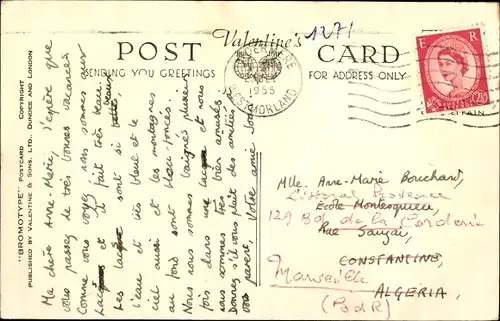 1271
Valentine's
POST CARD
SENDING YOU GREETINGS
FOR ADDRESS ONLY
"BROMOTYPE" POSTCARD COPYRIGHT
PUBLISHED BY VALENTINE & SONS, LTD. DUNDEE AND LONDON
1955
WESTMORLAND
E R
2½
Ma chère Anne-Marie, J'espère que
vous passez de très bonnes vacances
Comme vous voyez nous sommes aux
Lacs et il fait très beau
beaux
Les lacs sont si belles,
l'eau est très bleue et le
ciel aussi et les montagnes
au fond sont bleu-foncés.
Nous nous sommes baignés plusieurs
fois dans une lac et nous
nous sommes très bien amusés.
Donnez s'il vous plaît des amitiés
à vos parents, Votre amie
Mlle. Anne-Marie Bouchard,
Littoral Provence
Ecole Montesquieu,
129 Bd de la Corderie
Rue Sauzai,
CONSTANTINE,
Marseille
ALGERIA
(BdR)